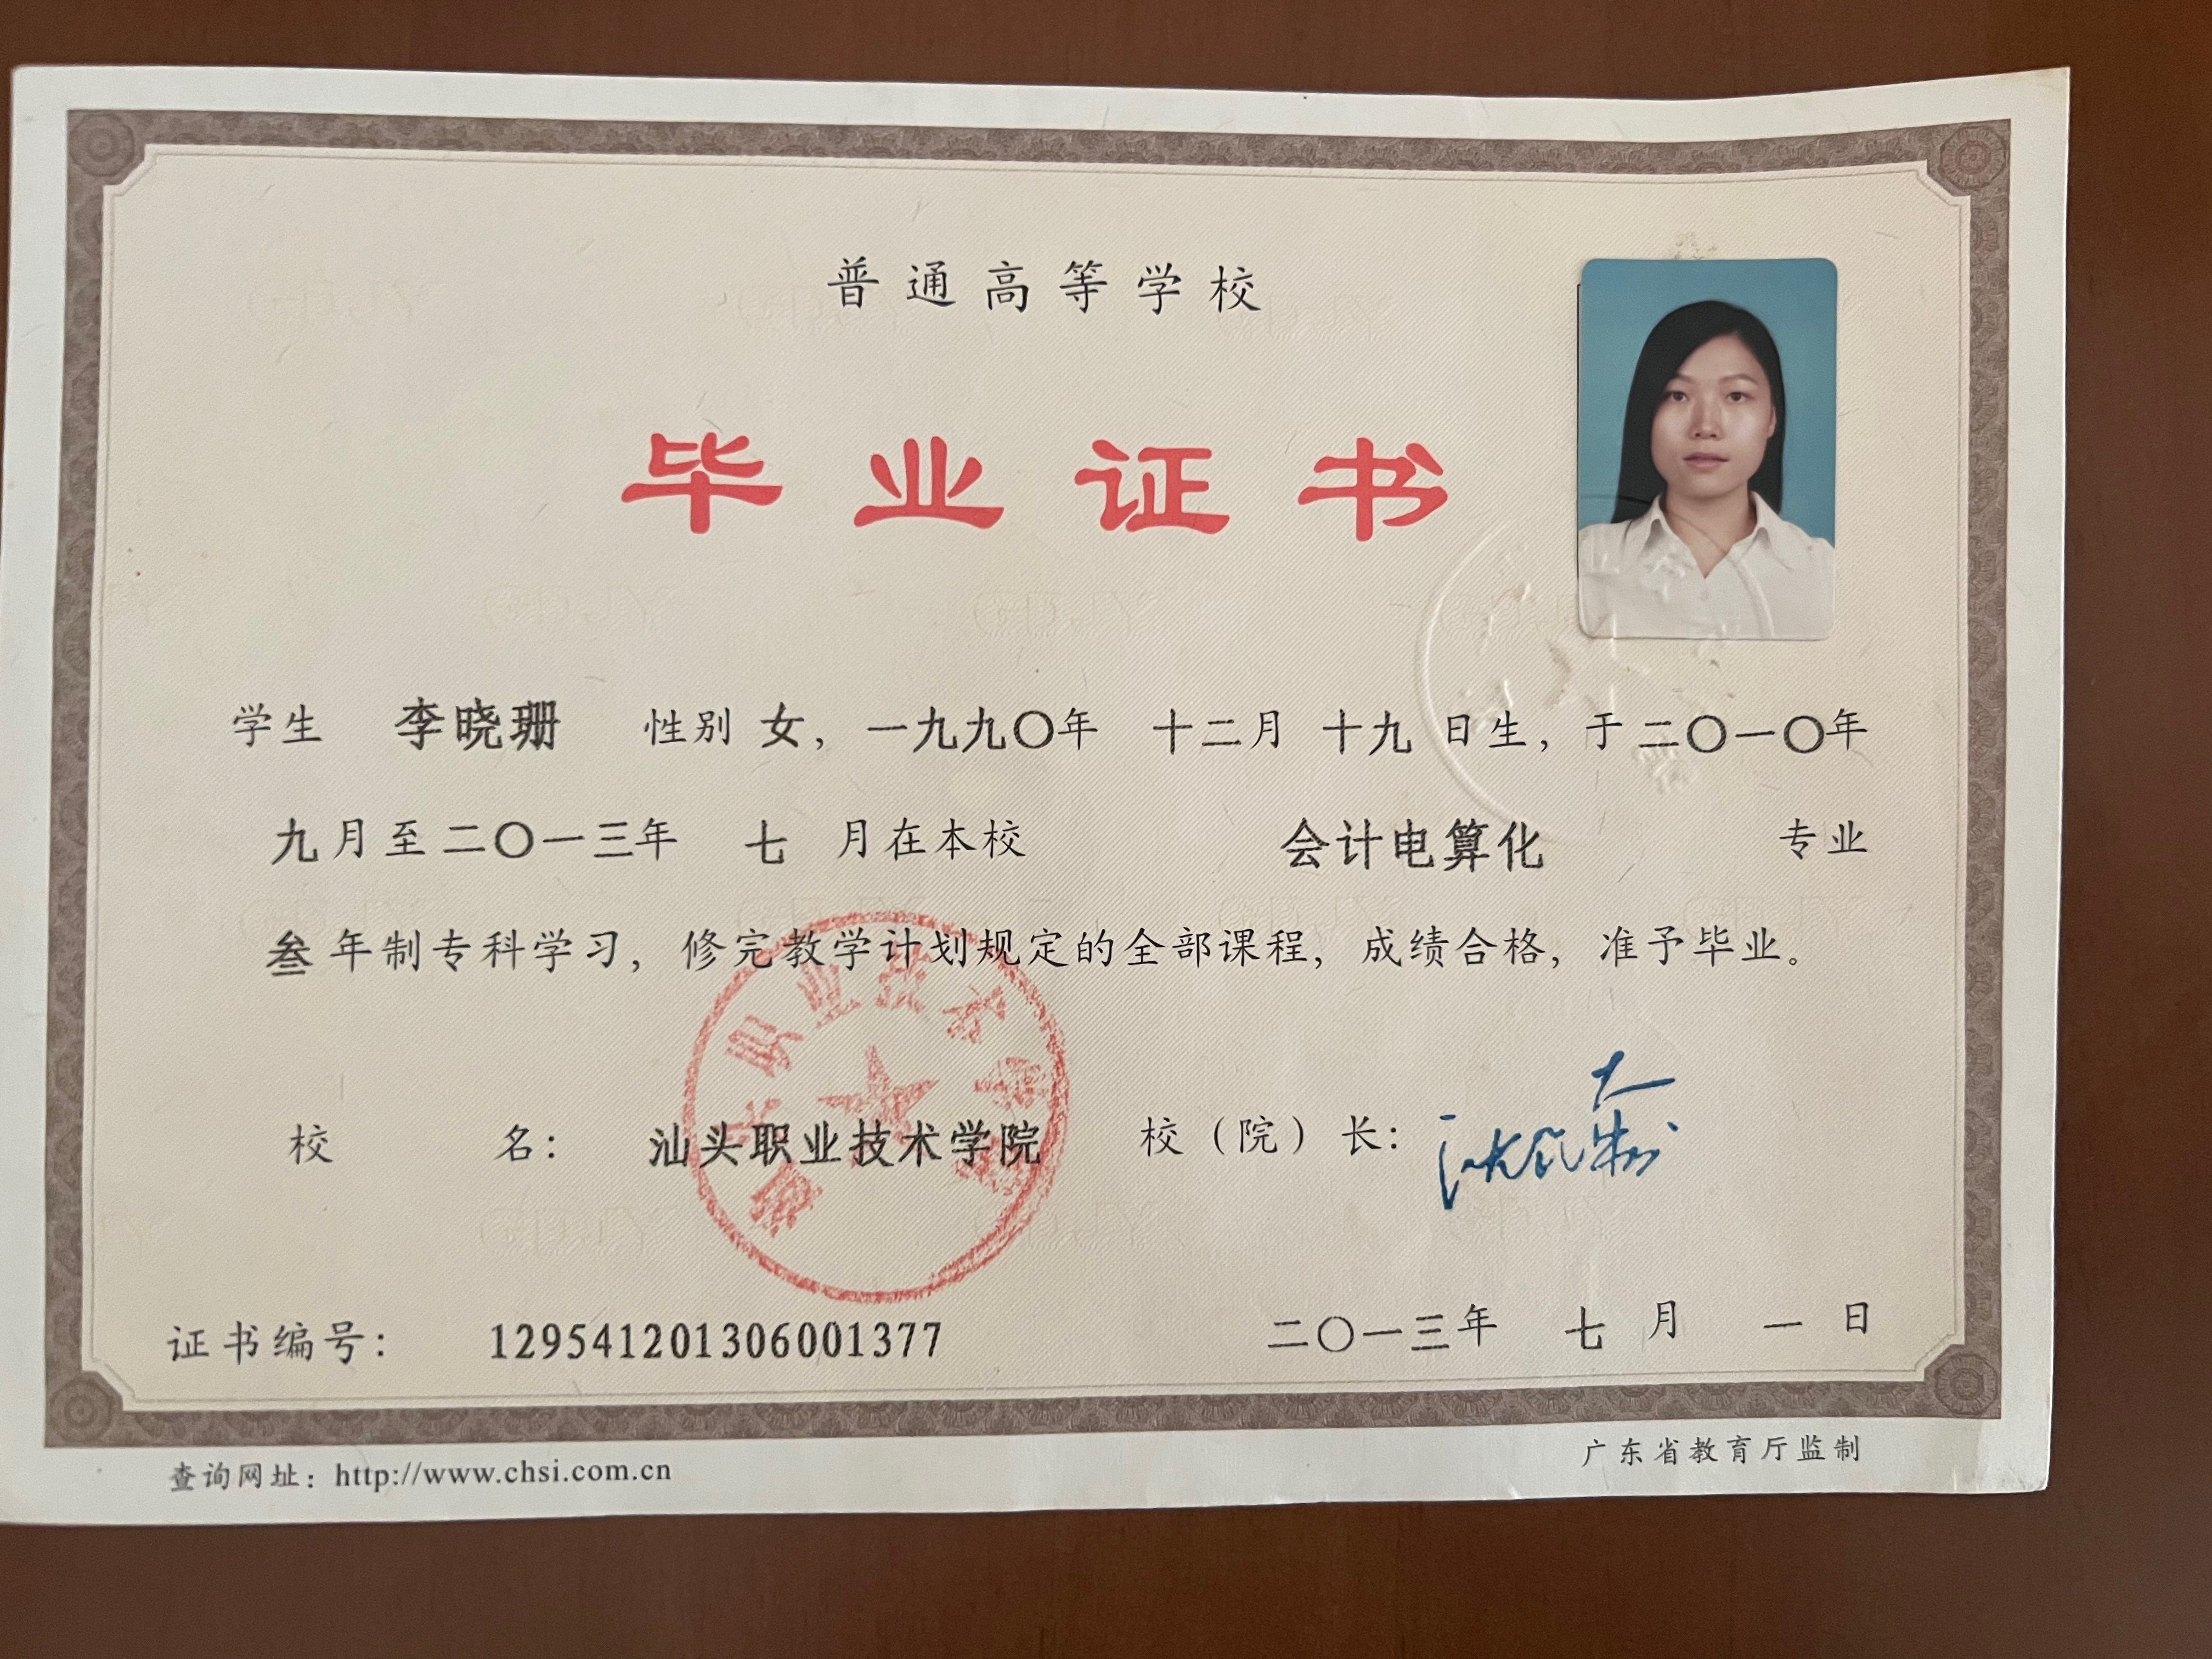 普通高等学校
毕业证书
学生 李晓珊 性别 女，一九九〇年 十二月 十九 日生，于二〇一〇年
九月至二〇一三年 七 月在本校 会计电算化 专业
叁年制专科学习，修完教学计划规定的全部课程，成绩合格，准予毕业。
校 名：汕头职业技术学院 校（院）长：
证书编号：129541201306001377 二〇一三年 七 月 一 日
查询网址：http://www.chsi.com.cn 广东省教育厅监制